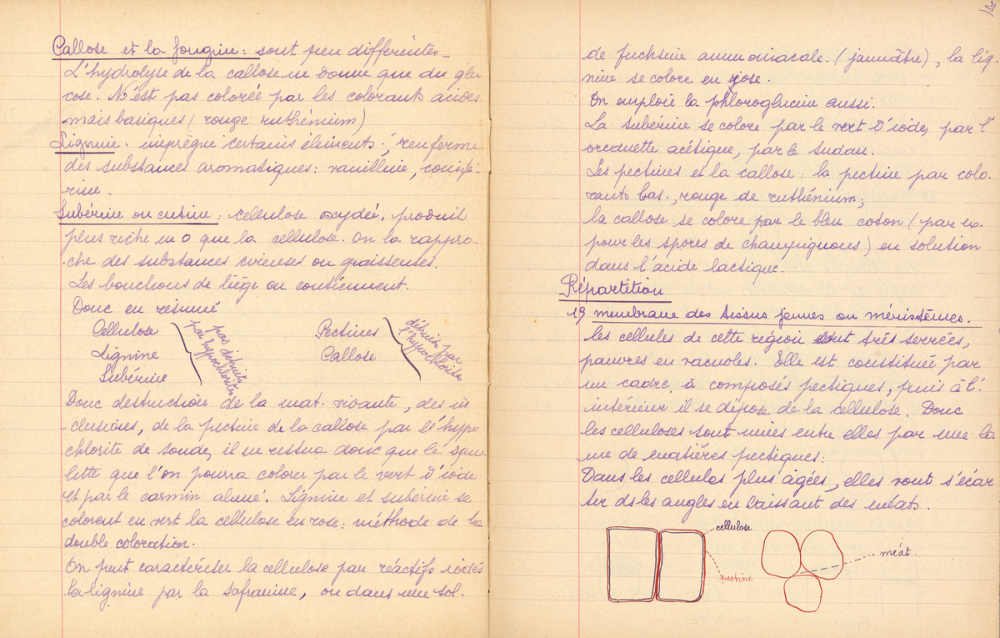 Callose et la fongine : sont peu différentes.
L'hydrolyse de la callose ne donne que du glu
cose. N'est pas colorée par les colorants acides
mais basiques (rouge ruthénium)
Lignine. imprègne certains éléments ; renferme
des substances aromatiques : vanilline, conifé-
rine.
Subérine ou cutine : cellulose oxydée, produit
plus riche en O que la cellulose. On la rappro-
che des substances cireuses ou graisseuses.
Les bouchons de liège en contiennent.
Donc en résumé
Cellulose
Lignine
Subérine
pas détruits
par hypochlorite
Pectines
Callose
détruits par
l'hypochlorite
Donc destruction de la mat. vivante, des in
clusions, de la pectine de la callose par l'hypo
chlorite de soude, il ne restera donc que le squ
lette que l'on pourra colorer par le vert d'iode
et par le carmin aluné. Lignine et subérine se
colorent en vert la cellulose en rose : méthode de la
double coloration.
On peut caractériser la cellulose par réactifs iodés
La lignine par la safranine, ou dans une sol.
21
de fuchsine ammoniacale. (jaunâtre), la lig.
nine se colore en rose.
On emploie la phloroglucine aussi.
La subérine se colore par le vert d'iode, par l'
orcanette acétique, par le sudan.
Les pectines et la callose : la pectine par colo.
rants bas., rouge de ruthénium ;
la callose se colore par le bleu coton (par ex.
pour les spores de champignons) en solution
dans l'acide lactique.
Répartition
1°) membrane des tissus jeunes ou méristèmes.
les cellules de cette région sont très serrées,
pauvres en vacuoles. Elle est constituée par
un cadre à composés pectiques, puis à l'
intérieur il se dépose de la cellulose. Donc
les celluloses sont unies entre elles par une la
me de matières pectiques.
Dans les cellules plus âgées, elles vont s'écar
ter ds les angles en laissant des méats.
cellulose
pectine
méat